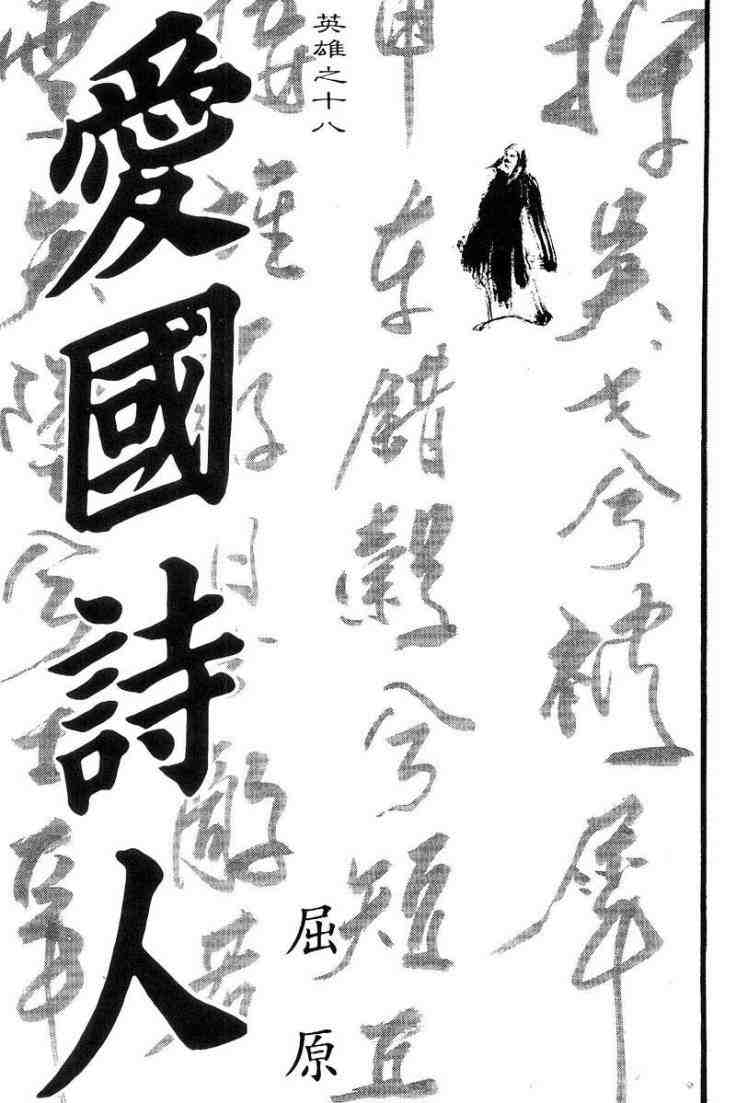 英雄之十八
愛國詩人
屈原
操吳戈兮被犀
甲車錯轂兮短兵
日兮敵若
雲
兮士爭